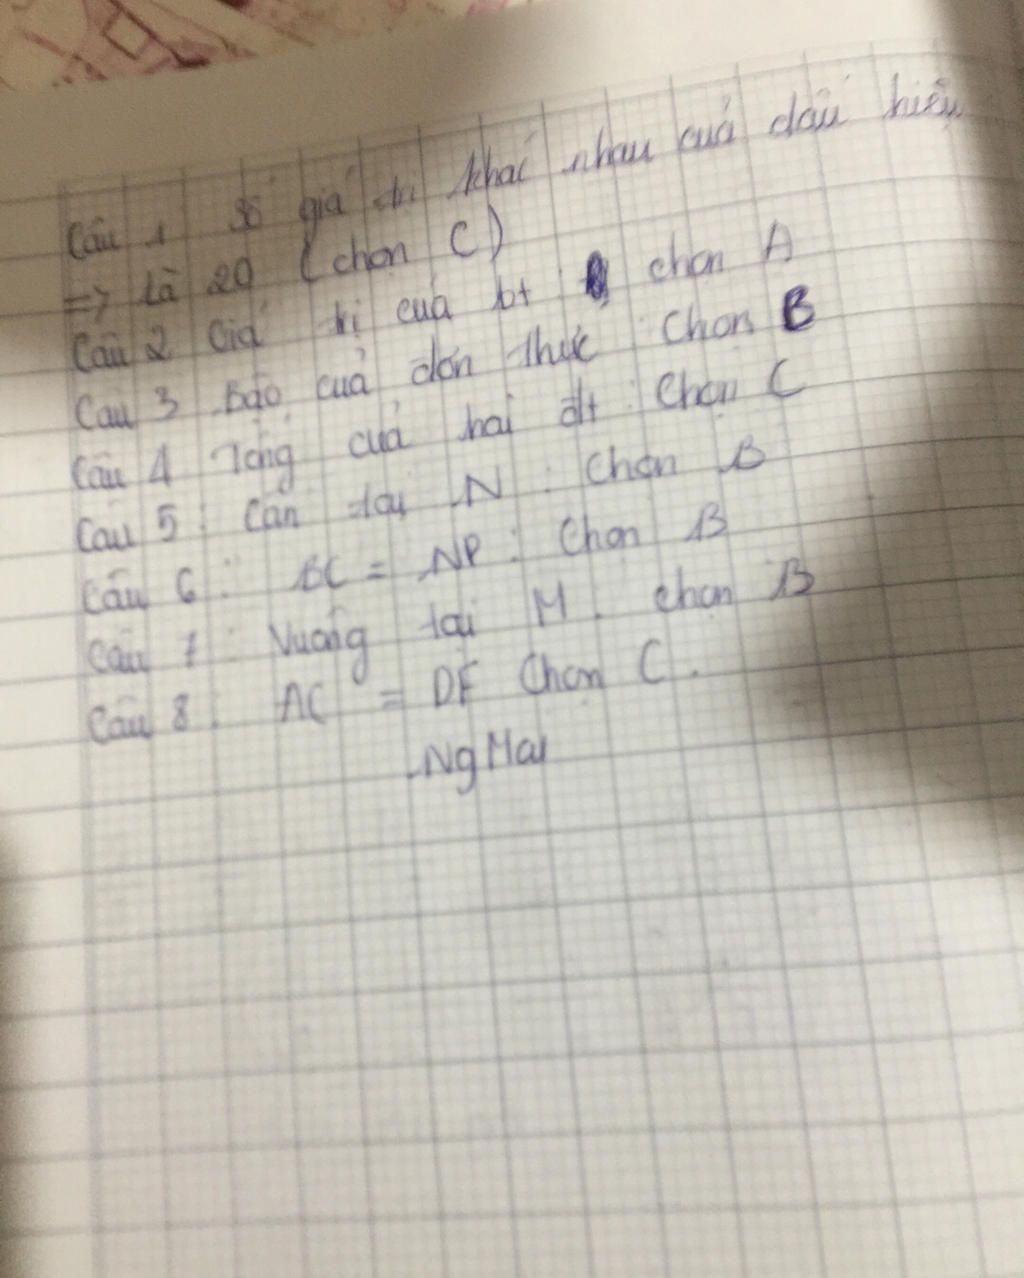 Câu 1 Số giá trị khác nhau của dấu hiệu
=> Là 20 (chọn C)
Câu 2 Giá trị của bt chọn A
Câu 3 Bậc của đơn thức : Chọn B
Câu 4 Tổng của hai đt : Chọn C
Câu 5 : Cân tại N : Chọn B
Câu 6 : BC = NP : Chọn B
Câu 7 : Vuông tại M . chọn B
Câu 8 : AC = DF Chọn C .
Ng Mai